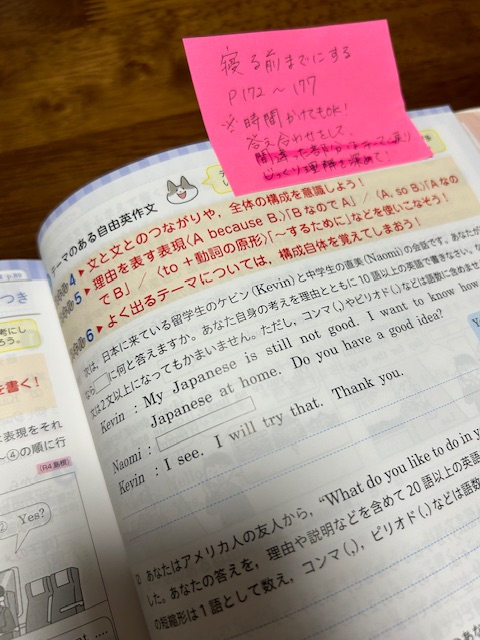 寝る前までにする
P172〜177
※時間かけてもOK!
答え合わせをして、
間違った部分は
じっくり理解を深めて!
テーマのある自由英作文
4 ▶ 文と文とのつながりや，全体の構成を意識しよう！
5 ▶ 理由を表す表現〈A because B.〉「BなのでA」/〈A, so B.〉「Aなの
でB」/〈to＋動詞の原形〉「〜するために」などを使いこなそう！
6 ▶ よく出るテーマについては，構成自体を覚えてしまおう！
次は，日本に来ている留学生のケビン(Kevin)と中学生の直美(Naomi)の会話です。あなたが
なら□に何と答えますか。あなた自身の考えを理由とともに10語以上の英語で書きなさい。
文は2文以上になってもかまいません。ただし，コンマ(,)やピリオド(.)などは語数に含めませ
Kevin : My Japanese is still not good. I want to know how
Japanese at home. Do you have a good idea?
Naomi :
Kevin : I see. I will try that. Thank you.
2 あなたはアメリカ人の友人から，"What do you like to do in y
した。あなたの答えを，理由や説明などを含めて20語以上の英語
の短縮形は1語として数え，コンマ(,)，ピリオド(.)などは語数
p.89
つき
考にし
ろう。
を書く！
な表現をそれ
〜④の順に行
(R4 島根)
② Yes?